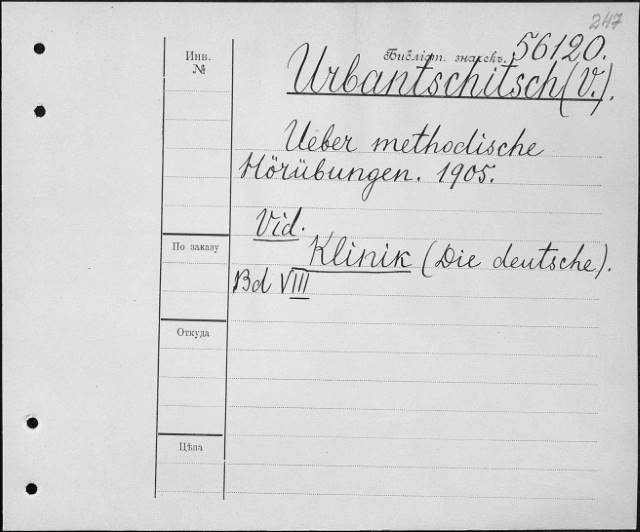 247
Инв. №
Библіот. значекъ. 56120.
Urbantschitsch (V.).
Ueber methodische
Hörübungen. 1905.
Vid.
По заказу
Klinik (Die deutsche).
Bd VIII
Откуда
Цѣна